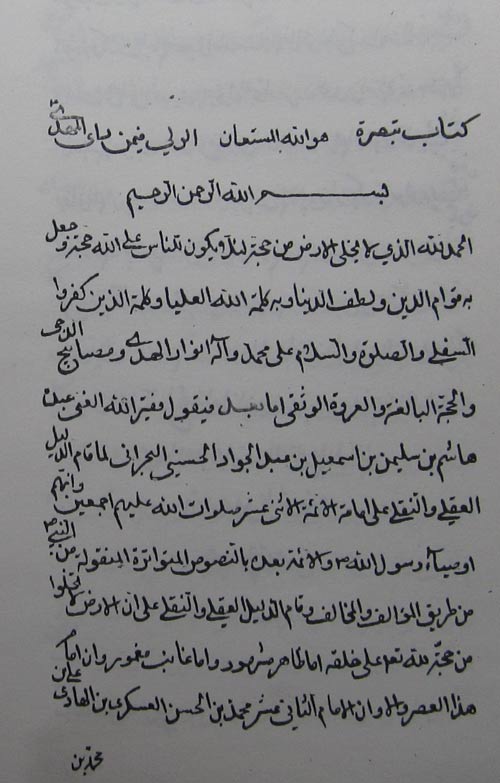 كتاب تبصرة هو الله المستعان الولي فيمن رأى المهدي
بسم الله الرحمن الرحيم
الحمد لله الذي لا يخلى الارض من حجة لئلا يكون للناس على الله حجة وجعل
به قوام الدين ولطف الدنيا وبه كلمة الله العليا وكلمة الذين كفروا
السفلى والصلوة والسلام على محمد وآله انوار الهدى ومصابيح الدجى
والحجة البالغة والعروة الوثقى اما بعد فيقول فقير الله الغنى عبده
هاشم بن سليمن بن اسمعيل بن عبد الجواد الحسيني البحراني لما قام الدليل
العقلى والنقلى على امامة الائمة الاثنى عشر صلوات الله عليهم اجمعين وانهم
اوصياء رسول الله ص والائمة بعده بالنصوص المتواترة المنقولة من النبي ص
من طريق المؤالف والمخالف وقام الدليل العقلى والنقلى على ان الارض لا تخلوا
من حجة لله تعالى على خلقه اما ظاهر مشهور واما غائب مغمور وان امام
هذا العصر والاوان الامام الثانى عشر محمد بن الحسن العسكرى بن الهادى على بن
محمد بن